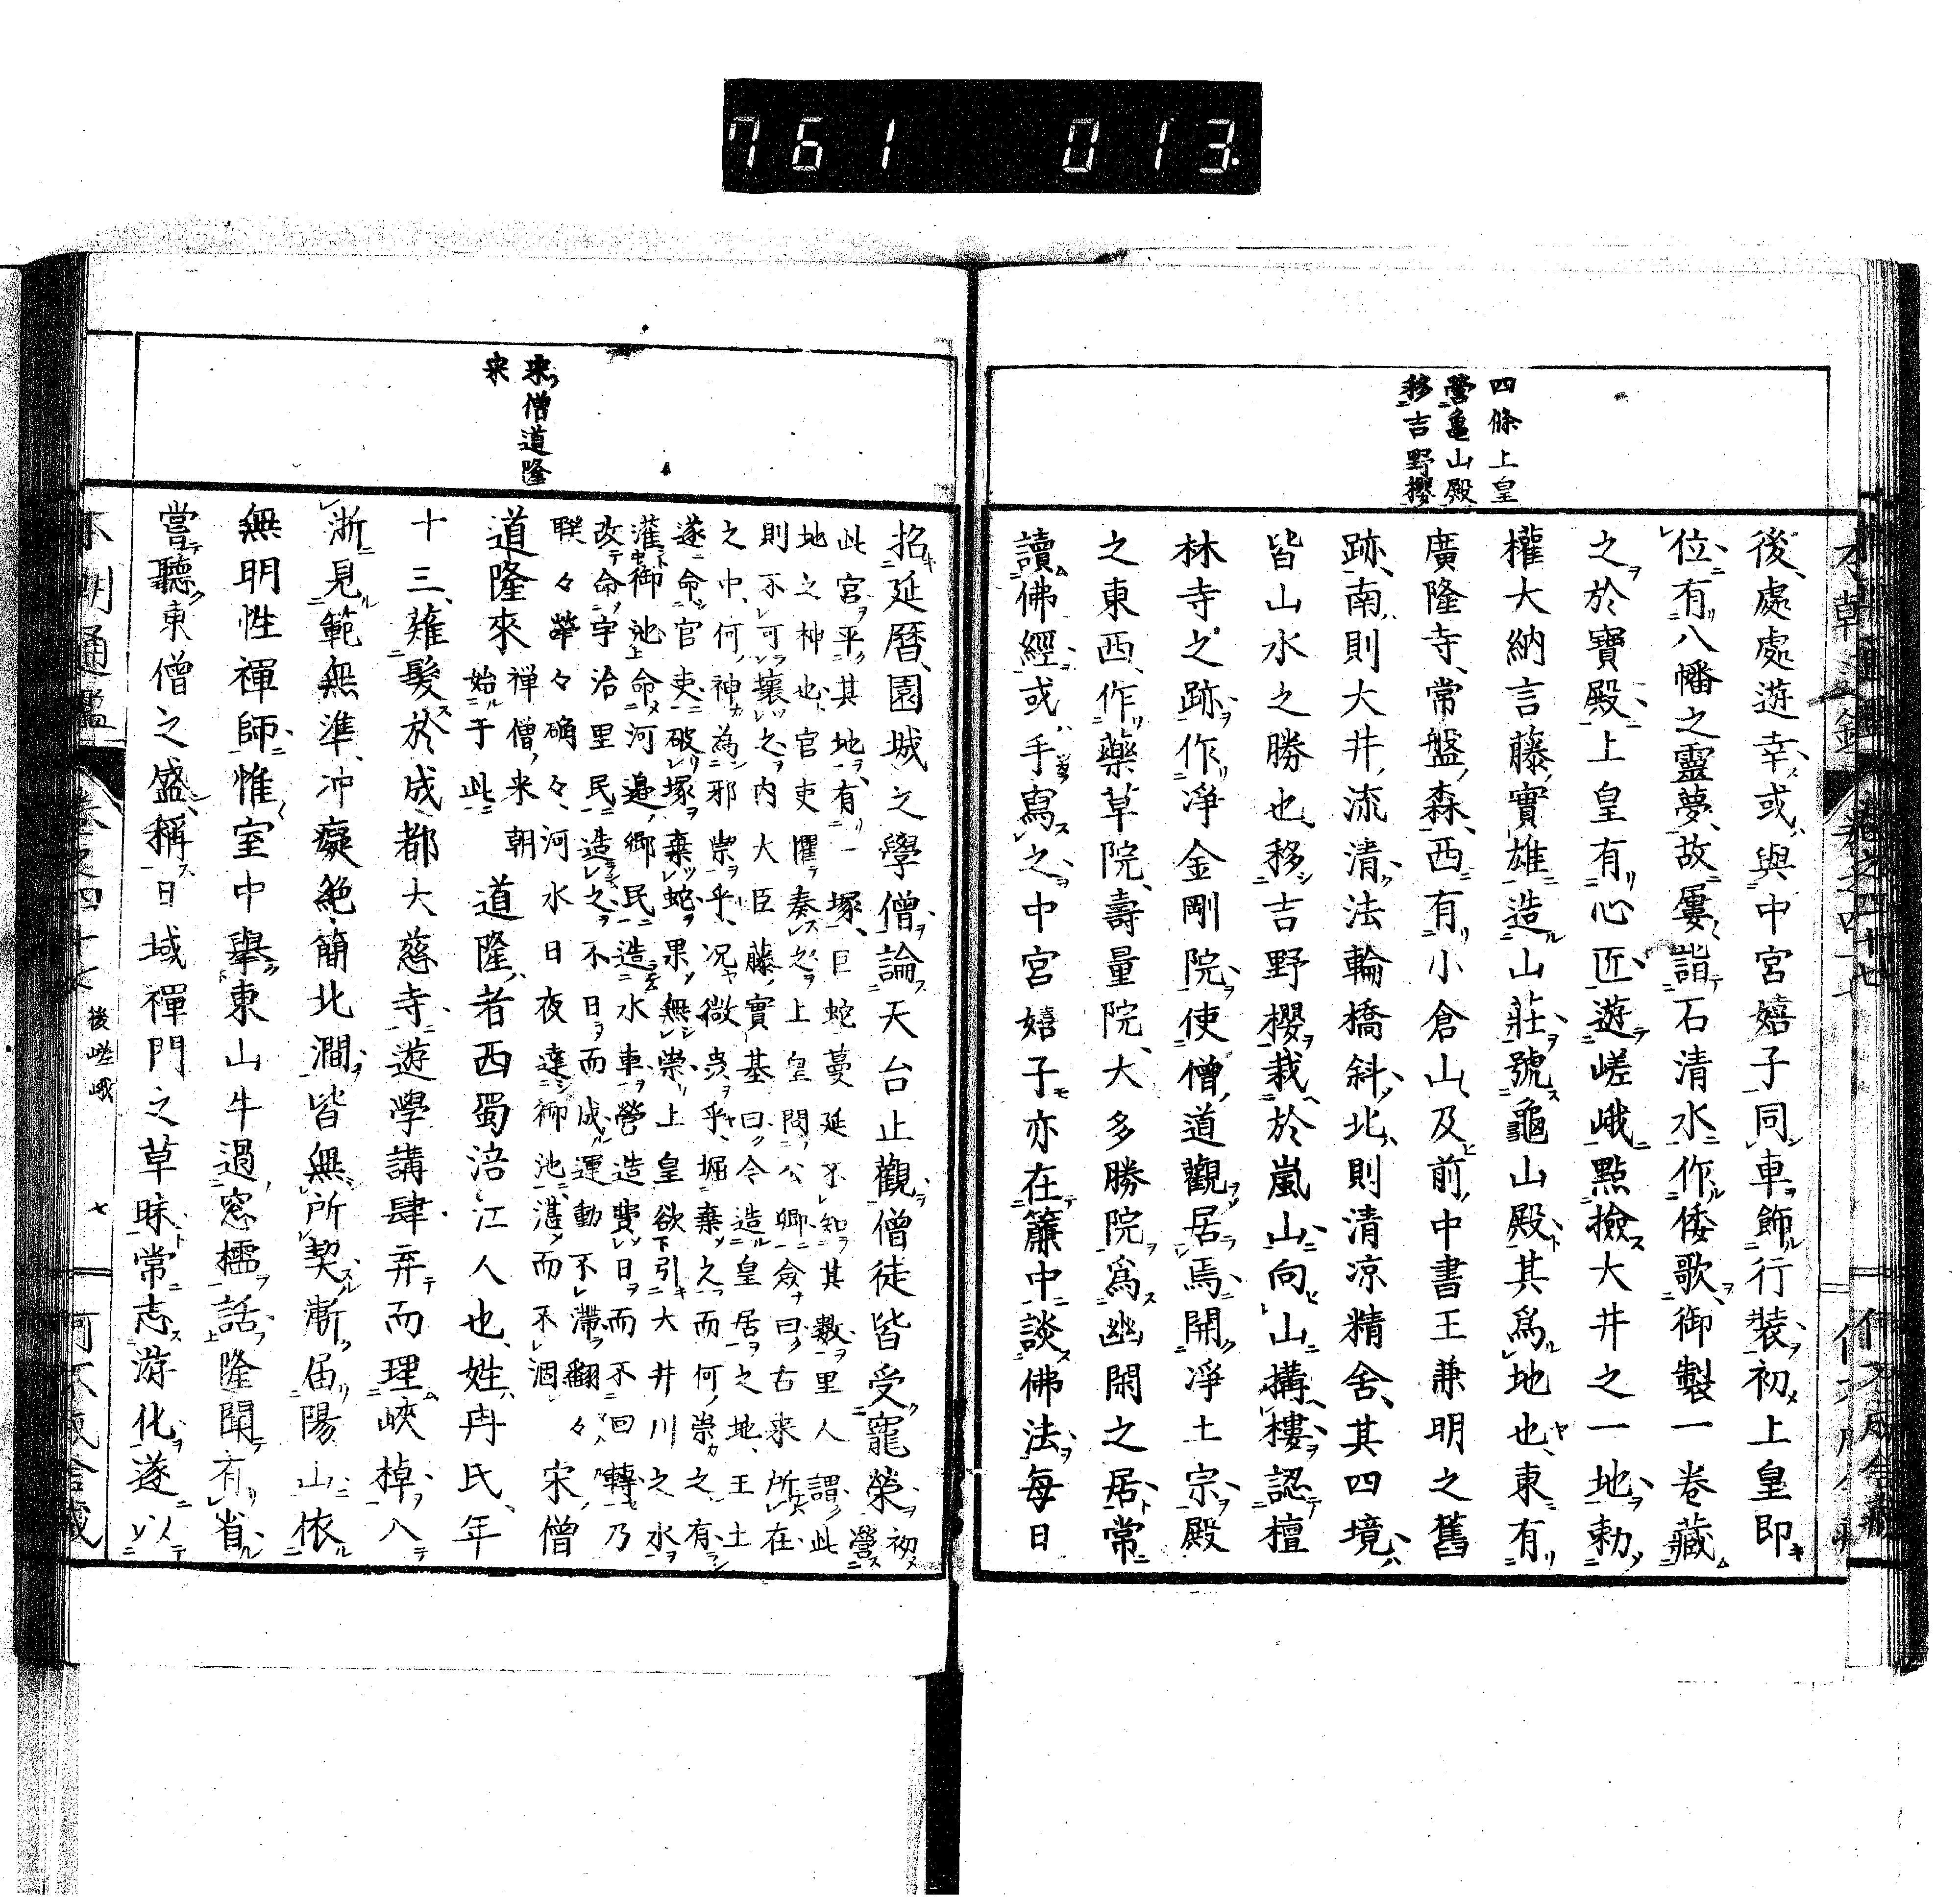 761 013
四條上皇
營龜山殿
移吉野櫻
後處處遊幸或與中宮嬉子同車飾行裝初上皇即
位有八幡之靈夢故屢詣石清水作倭歌御製一卷藏
之於寶殿上皇有心匠遊嵯峨點撿大井之一地勅
權大納言藤實雄造山莊號龜山殿其爲地也東有
廣隆寺常盤森西有小倉山及前中書王兼明之舊
跡南則大井流清法輪橋斜北則清凉精舍其四境
皆山水之勝也移吉野櫻栽於嵐山向山搆樓認檀
林寺之跡作淨金剛院使僧道觀居焉開淨土宗殿
之東西作藥草院壽量院大多勝院爲幽閑之居常
讀佛經或手寫之中宮嬉子亦在簾中談佛法每日
宋僧道隆
来
招延曆園城之學僧論天台止觀僧徒皆受寵榮初營
此宮平其地有一塚巨蛇蔓延不知其數里人謂此
地之神也官吏懼奏之上皇問公卿僉曰古来所在
則不可壞之內大臣藤實基曰今造皇居之地王土
之中何神為邪祟乎况微蟲乎堀棄之而何祟之有
遂命官吏破塚棄蛇果無祟上皇欲引大井川之水
灌御池上命河邉鄉民造水車營造費日而不回轉乃
改命宇治里民造之不日而成運動不滯翻々
聯々犖々确々河水日夜達御池湛而不涸
宋僧
道隆來
禅僧来朝
始于此
道隆者西蜀涪江人也姓冉氏年
十三薙髮於成都大慈寺遊學講肆弃而理峽棹八
浙見範無準冲癡絶簡北澗皆無所契漸届陽山依
無明性禪師惟室中舉東山牛過窓櫺話隆聞有省
嘗聽東僧之盛稱日域禪門之草昧常志游化遂以
本朝通鑑 卷之四十七 後嵯峨 七